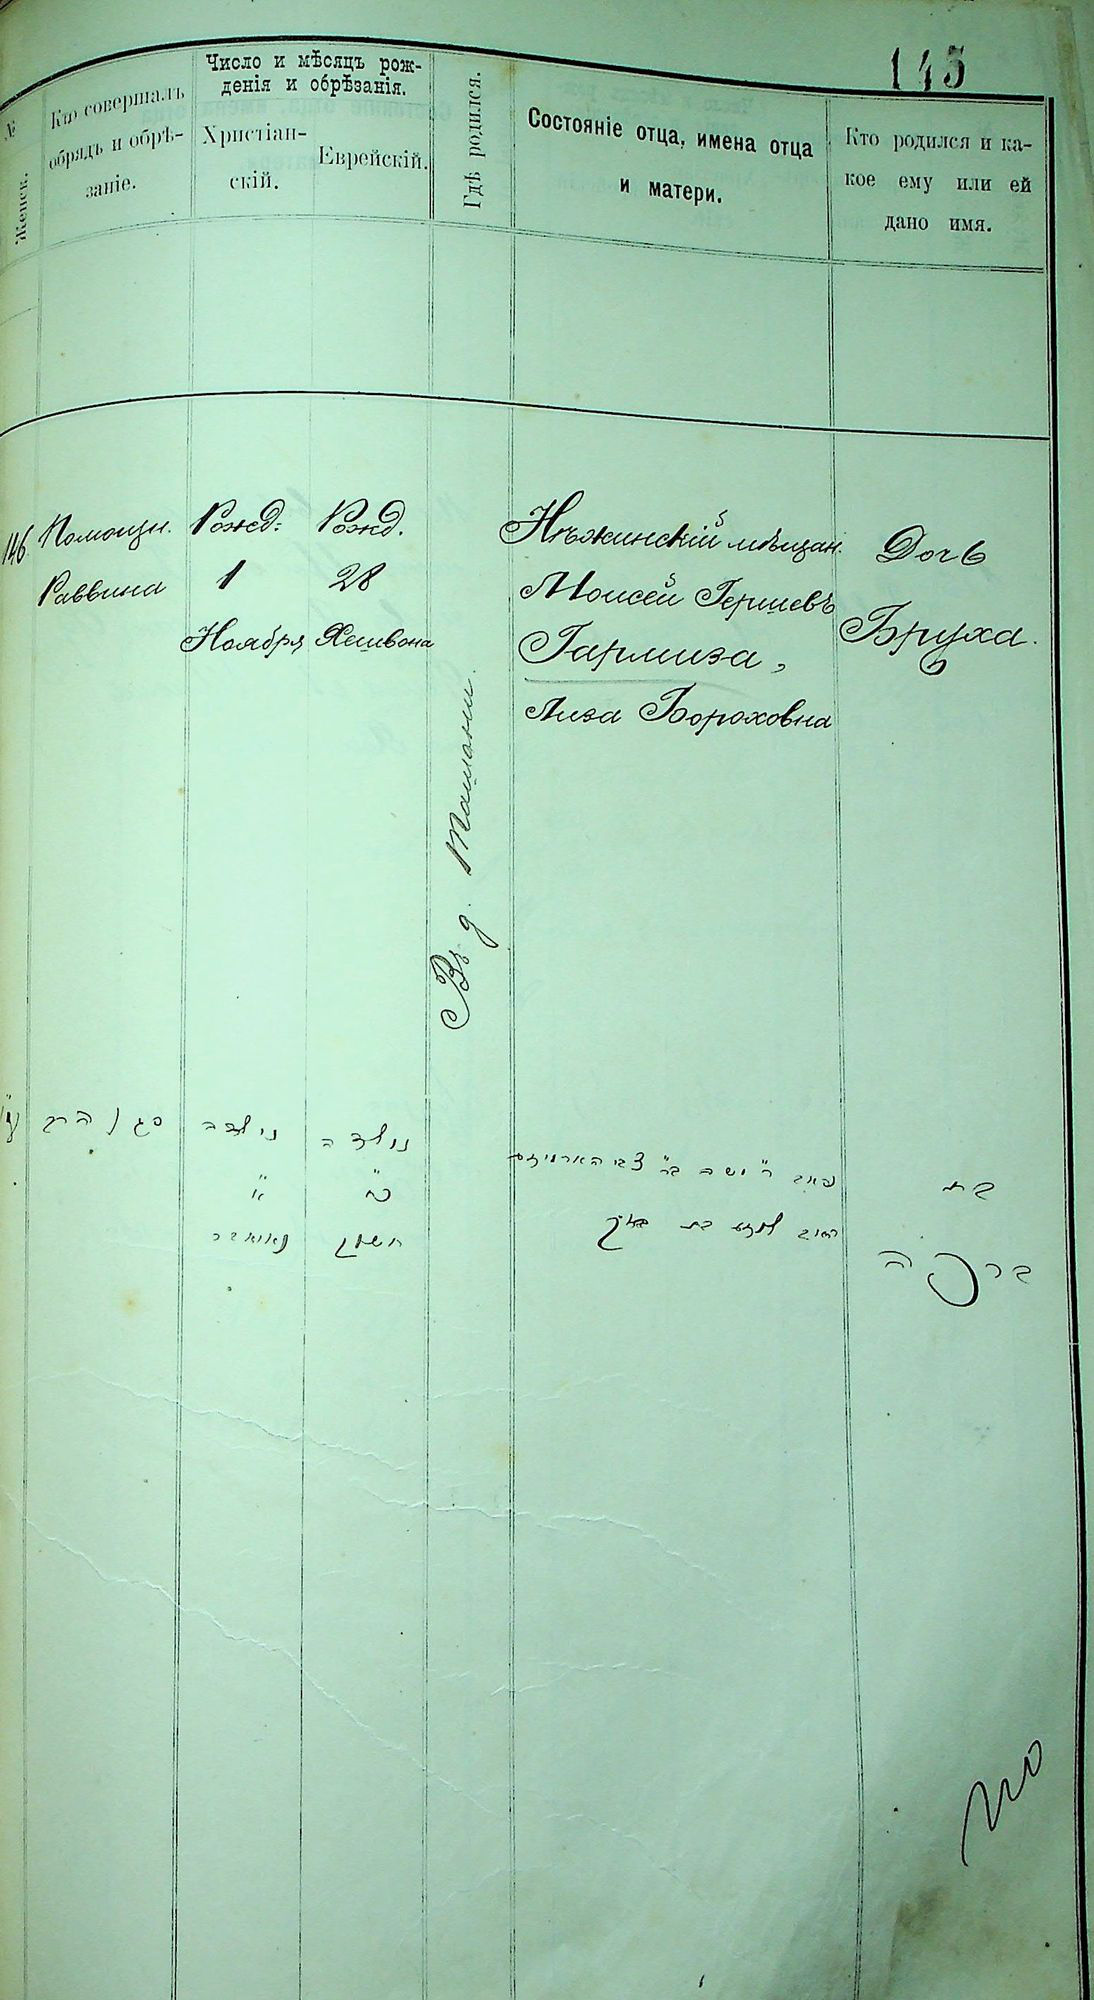 145
№
Женск.
Кто совершалъ
обрядъ и обрѣ-
заніе.
Число и мѣсяцъ рож-
денія и обрѣзанія.
Христіан-
скій.
Еврейскій.
Гдѣ родился.
Состояніе отца, имена отца
и матери.
Кто родился и ка-
кое ему или ей
дано имя.
146
Помощн.
Раввина
Рожд:
1
Ноября
Рожд.
28
Хешвона
Въ д.
Нѣжинскій мѣщан.
Моисей Гершевъ
Гармиза,
Лиза Бороховна
Дочь
Бруха.
נולדה
א"
נאוואבר
נולדה
כח"
חשון
בת
ברכה